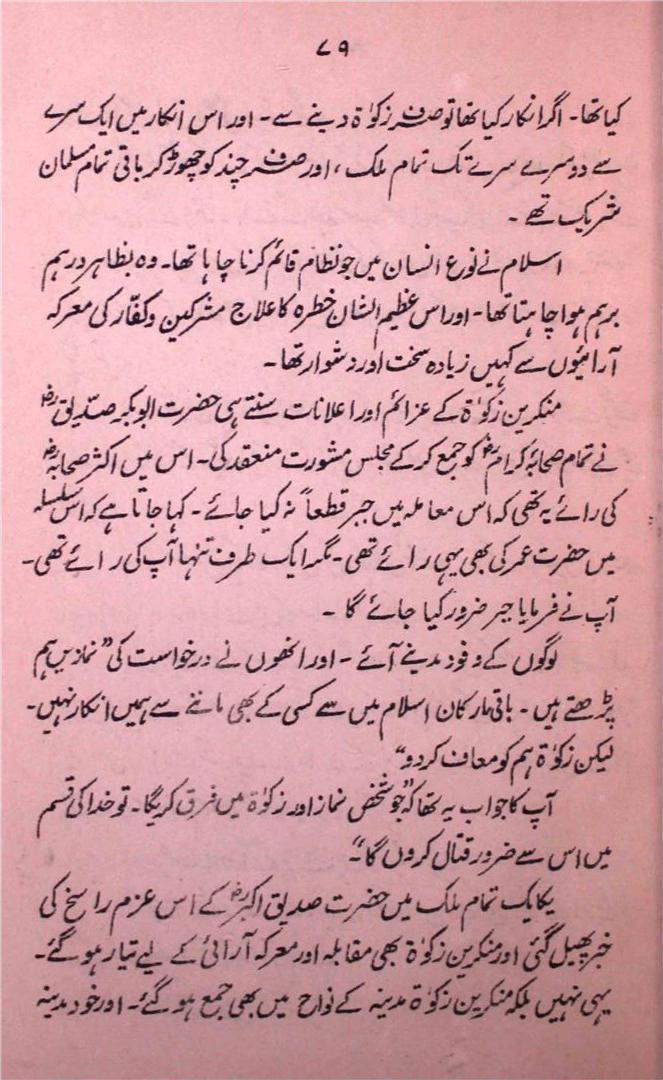 ۷۹
کیا تھا۔ اگر انکار کیا تھا تو صرف زکوٰۃ دینے سے۔ اور اس انکار میں ایک سرے
سے دوسرے سرے تک تمام ملک، اور صرف چند کو چھوڑ کر باقی تمام مسلمان
شریک تھے۔
اسلام نے نوع انسان میں جو نظام قائم کرنا چاہا تھا۔ وہ بظاہر درہم
برہم ہوا چاہتا تھا۔ اور اس عظیم الشان خطرہ کا علاج مشرکین و کفّار کی معرکہ
آرائیوں سے کہیں زیادہ سخت اور دشوار تھا۔
منکرین زکوٰۃ کے عزائم اور اعلانات سنتے ہی حضرت ابوبکر صدّیقؓ
نے تمام صحابۂ کرامؓ کو جمع کر کے مجلس مشورت منعقد کی۔ اس میں اکثر صحابہؓ
کی رائے یہ تھی کہ اس معاملہ میں جبر قطعاً نہ کیا جائے۔ کہا جاتا ہے کہ اس سلسلہ
میں حضرت عمر کی بھی یہی رائے تھی۔ مگر ایک طرف تنہا آپ کی رائے تھی۔
آپ نے فرمایا جبر ضرور کیا جائے گا ۔
لوگوں کے وفود مدینے آئے ۔ اور انھوں نے درخواست کی ”نمازیں ہم
پڑھتے ہیں۔ باقی ارکان اسلام میں سے کسی کے بھی ماننے سے ہمیں انکار نہیں۔
لیکن زکوٰۃ ہم کو معاف کر دو“
آپ کا جواب یہ تھا کہ ”جو شخص نماز اور زکوٰۃ میں فرق کریگا۔ تو خدا کی قسم
میں اس سے ضرور قتال کروں گا“۔
یکایک تمام ملک میں حضرت صدیق اکبرؓ کے اس عزم راسخ کی
خبر پھیل گئی اور منکرین زکوٰۃ بھی مقابلہ اور معرکہ آرائی کے لیے تیار ہو گئے۔
یہی نہیں بلکہ منکرین زکوٰۃ مدینہ کے نواح میں بھی جمع ہو گئے۔ اور خود مدینہ